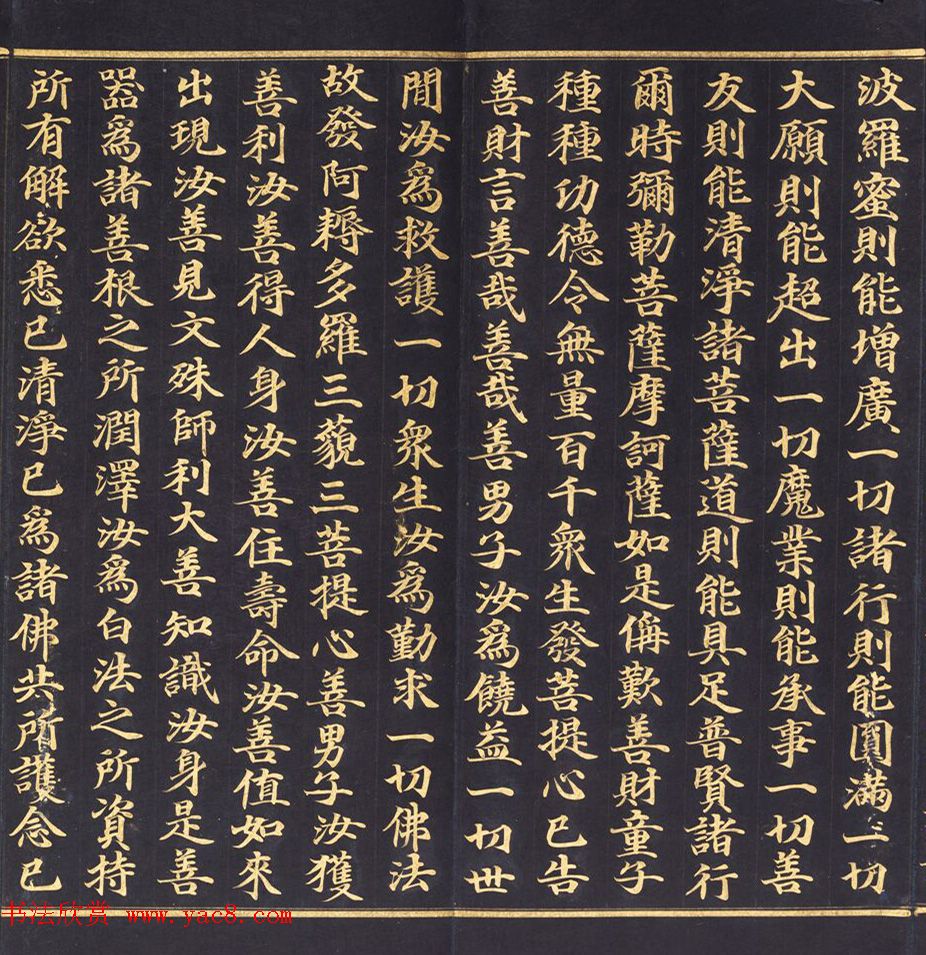 波羅蜜則能增廣一切諸行則能圓滿一切
大願則能超出一切魔業則能承事一切善
友則能清淨諸菩薩道則能具足普賢諸行
爾時彌勒菩薩摩訶薩如是偁歎善財童子
種種功德令無量百千衆生發菩提心已告
善財言善哉善哉善男子汝為饒益一切世
間汝為救護一切衆生汝為勤求一切佛法
故發阿耨多羅三藐三菩提心善男子汝獲
善利汝善得人身汝善住壽命汝善值如來
出現汝善見文殊師利大善知識汝身是善
器為諸善根之所潤澤汝為白法之所資持
所有解欲悉已清淨已為諸佛共所護念已
书法欣赏 www.yac8.com